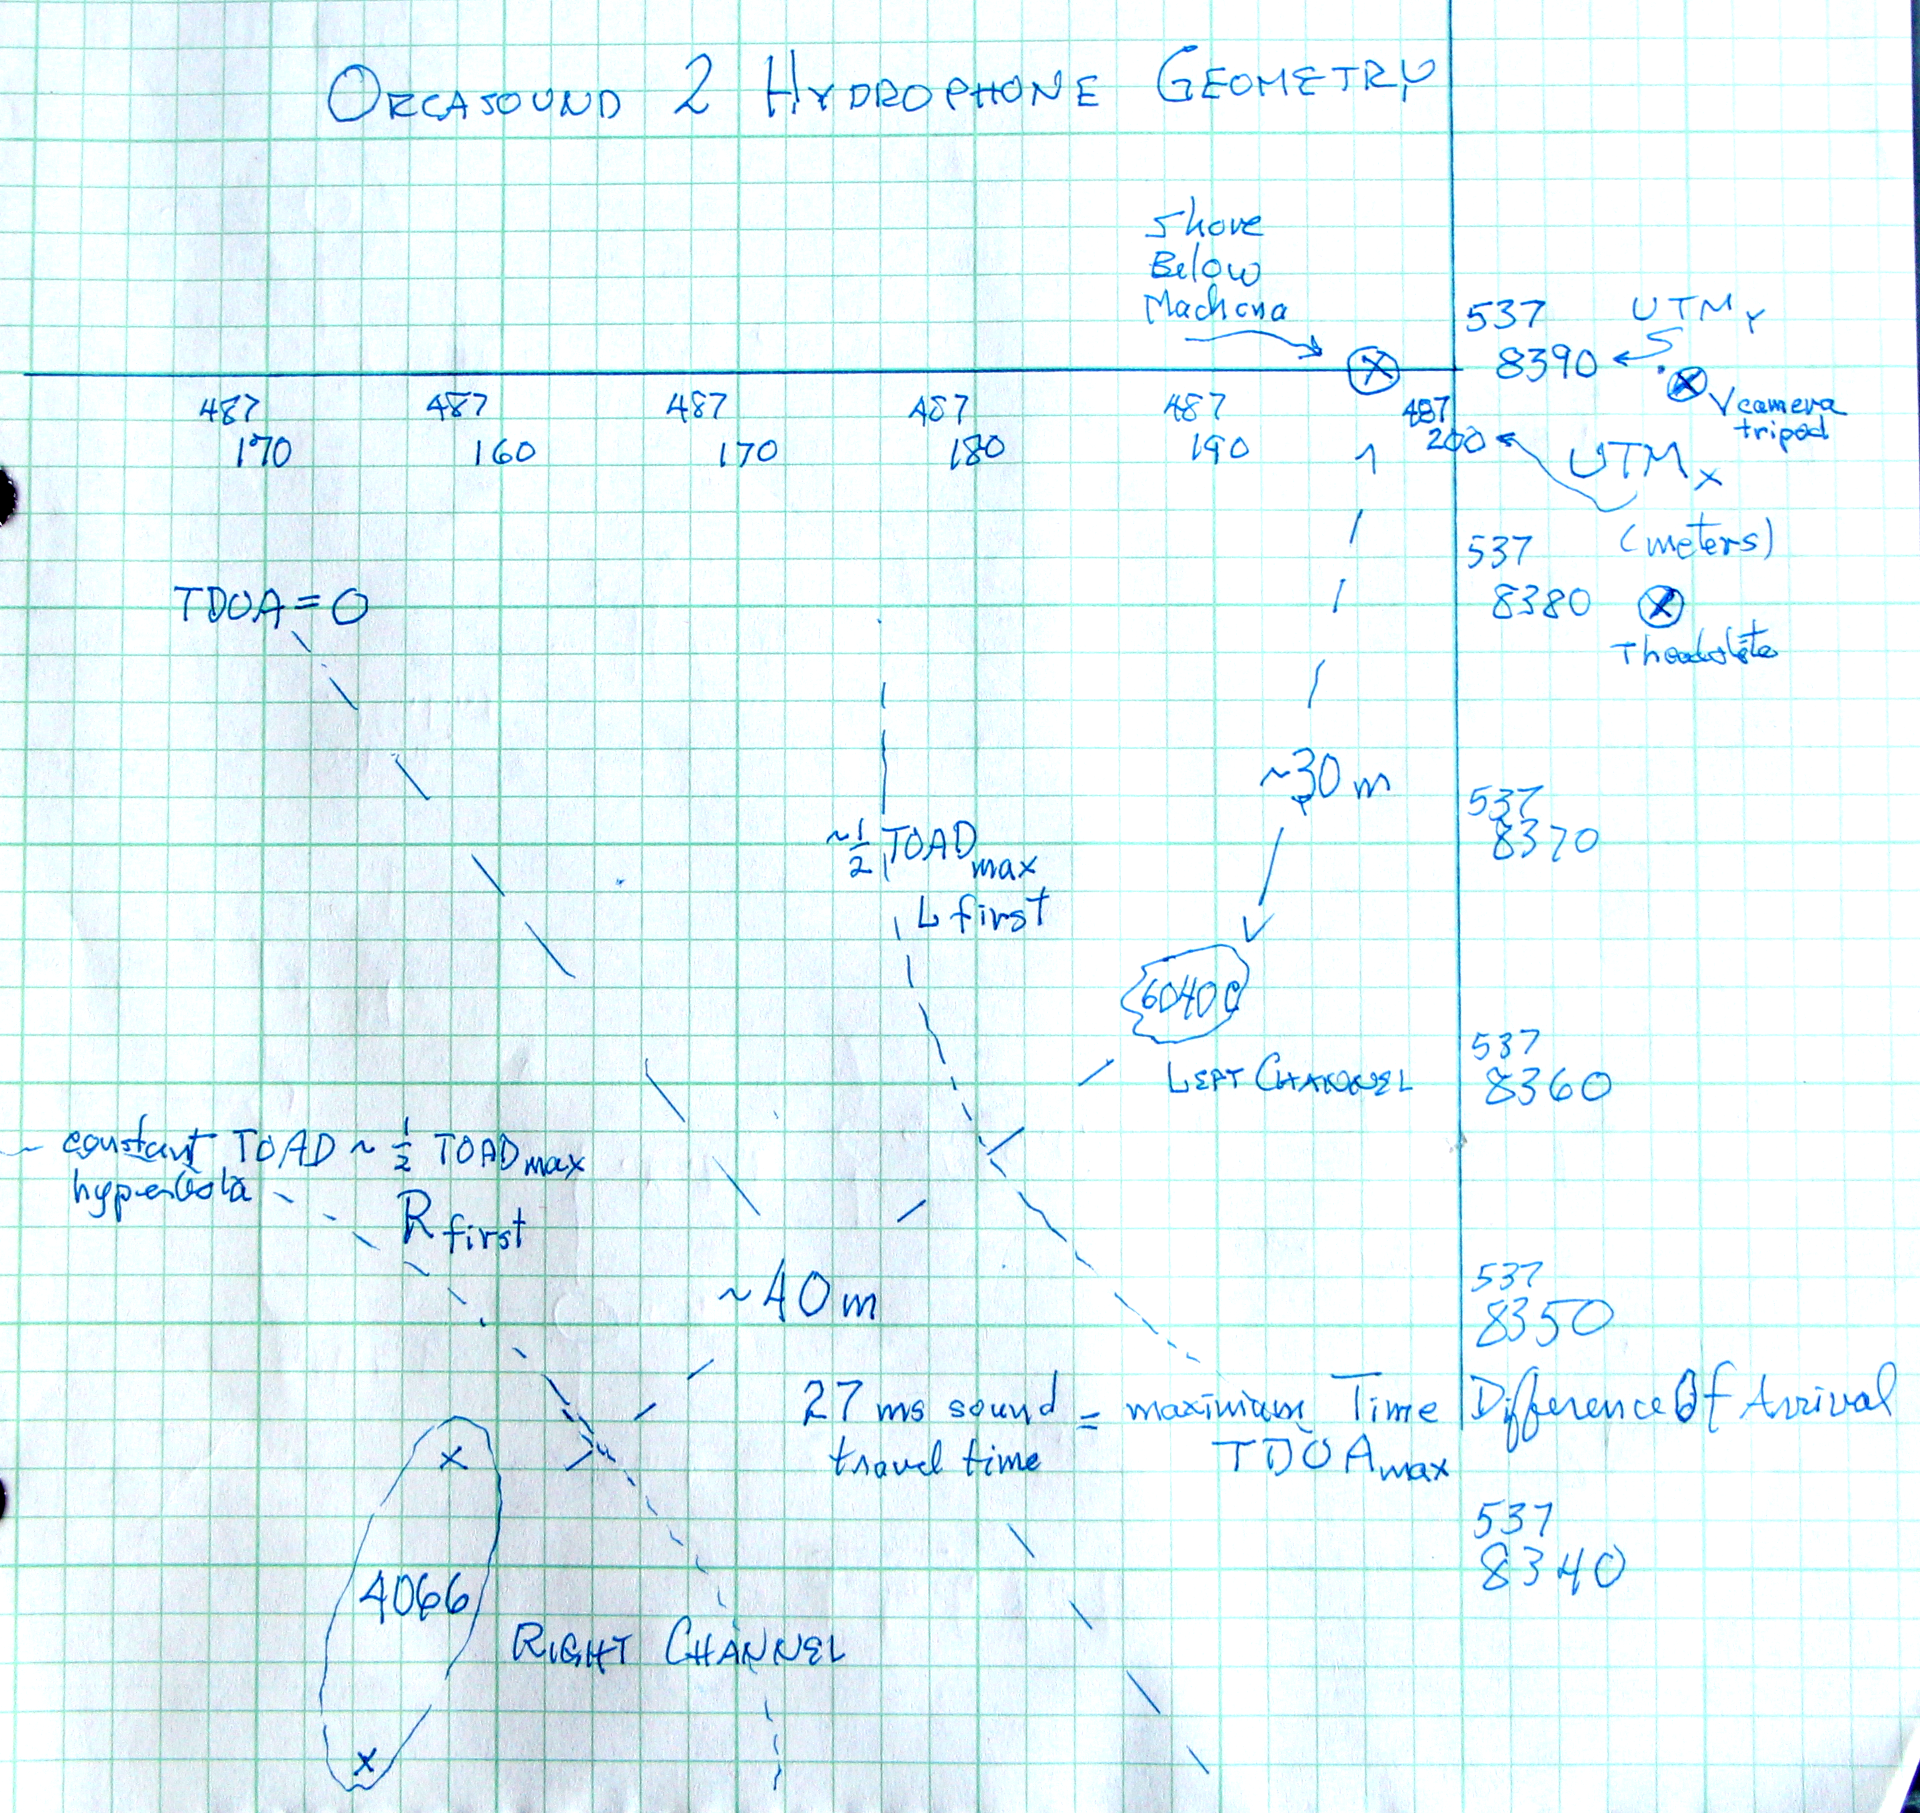 ORCASOUND 2 HYDROPHONE GEOMETRY
Shore
Below
Machena
537 UTM Y
8390
camera
tripod
487 487 487 487 487 487
170 160 170 180 190 200
UTM X
(meters)
537
8380
Theodolite
TDOA = 0
~30 m
537
8370
~1/2 TOAD max
L first
6040C
LEFT CHANNEL
537
8360
~ constant TOAD ~ 1/2 TOAD max
hyperbola
R first
~40 m
537
8350
27 ms sound = maximium Time Difference Of Arrival
travel time TDOA max
537
8340
4066
RIGHT CHANNEL